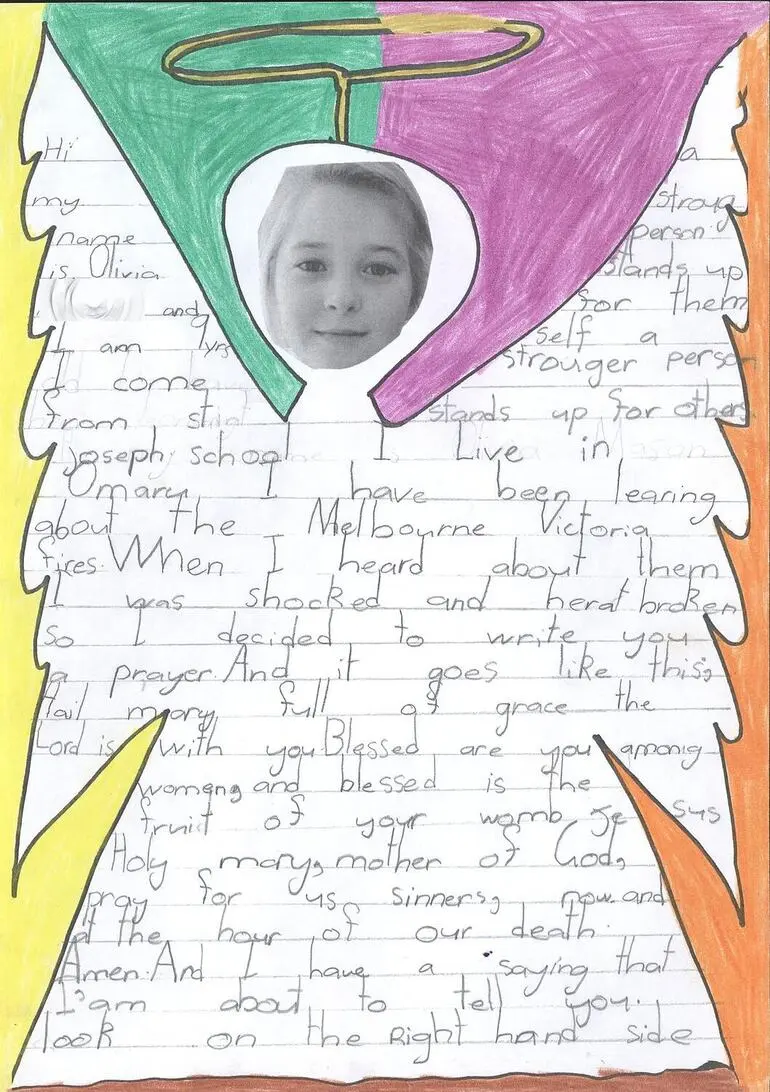 Hi
my
name
is Olivia
and
I am yrs
I come
from st
Joseph school I Live in
Omary I have been learing
about the Melbourne Victoria
fires. When I heard about them
I was shocked and herat broken
So I decided to write you
a prayer. And it goes like this,
Hail mary full of grace the
Lord is with you Blessed are you amonig
womeng and blessed is the
fruit of your womb Je sus
Holy mary, mother of God,
pray for us sinners, now and
at the hour of our death.
Amen. And I have a saying that
I'am about to tell you.
look on the Right hand side
a
stroug
person
stands up
for them
self a
strouger person
stands up for others